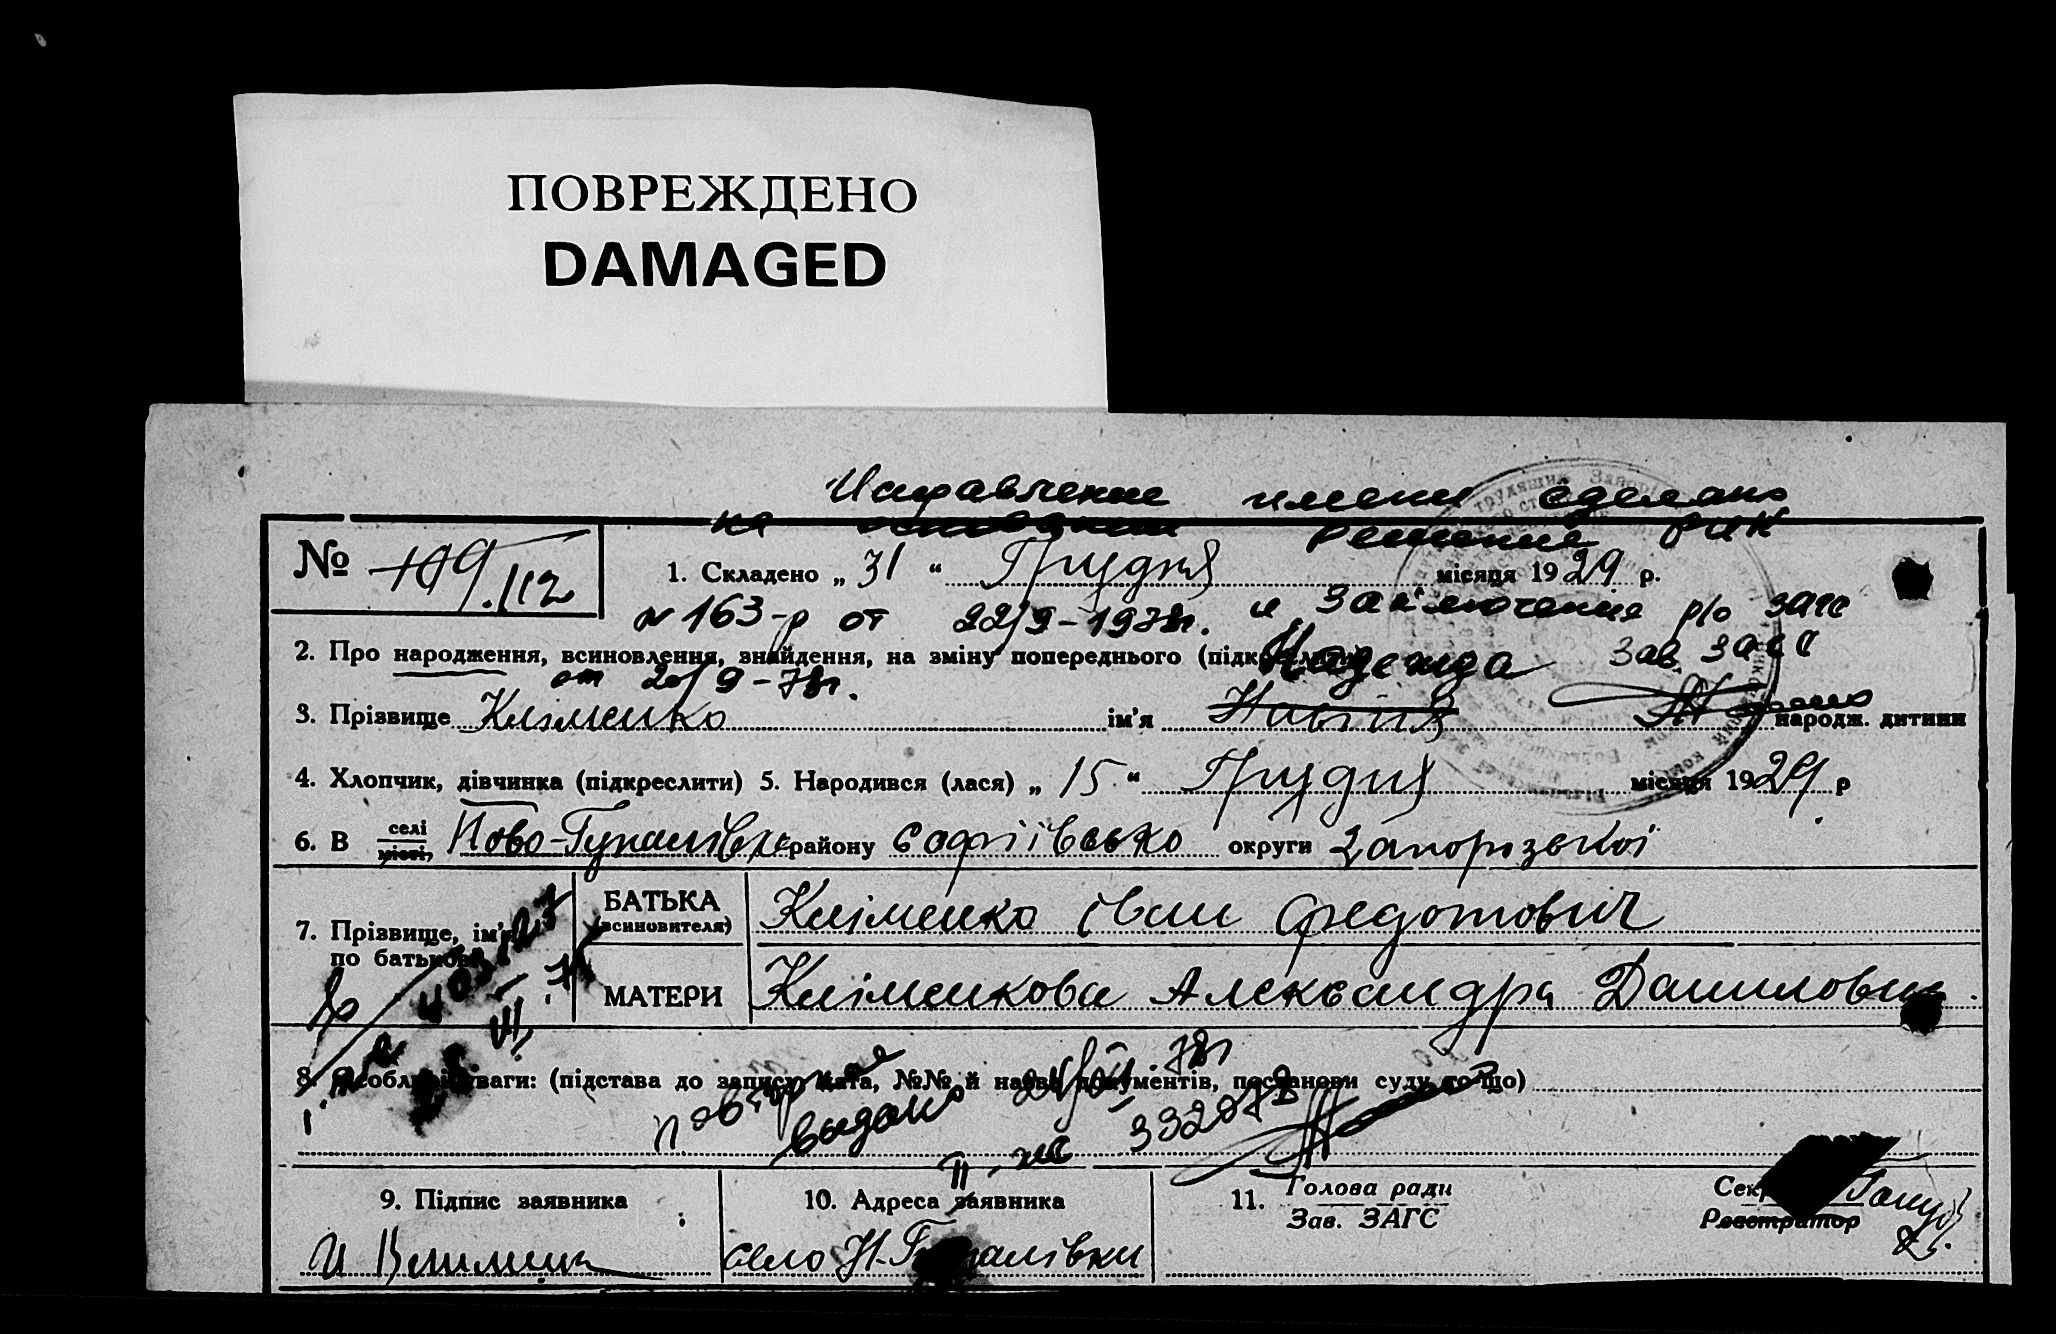 ПОВРЕЖДЕНО
DAMAGED
Исправление имени сделано
на основании решение РИК
№ 109 112
1. Складено „ 31 “ Грудня місяця 1929 р.
№ 163-р от 22/9-1978г. и заключение р/о загс
2. Про народження, всиновлення, знайдення, на зміну попереднього Надежда Зав. загс
от 20/9-78г.
3. Прізвище Кліменко ім’я народж. дитини
4. Хлопчик, дівчинка (підкреслити) 5. Народився (лася) „ 15 “ Грудня місяця 1929 р
6. В селі місті, Ново-Гупалівка району Софіївсько округи Запорізької
7. Прізвище, ім’я
по батькові
БАТЬКА
(всиновителя)
Кліменко Іван Федотович
МАТЕРИ
Кліменкова Александра Даниловна
8. Особливі уваги: (підстава до запису, дата, №№ й назва документів, постанови суду то-що)
повторное 21/VI-78г
выдано
II-ЖС 332072
9. Підпис заявника
10. Адреса заявника
11. Голова ради
Зав. ЗАГС
Реєстратор
село Н.-Гупалівки